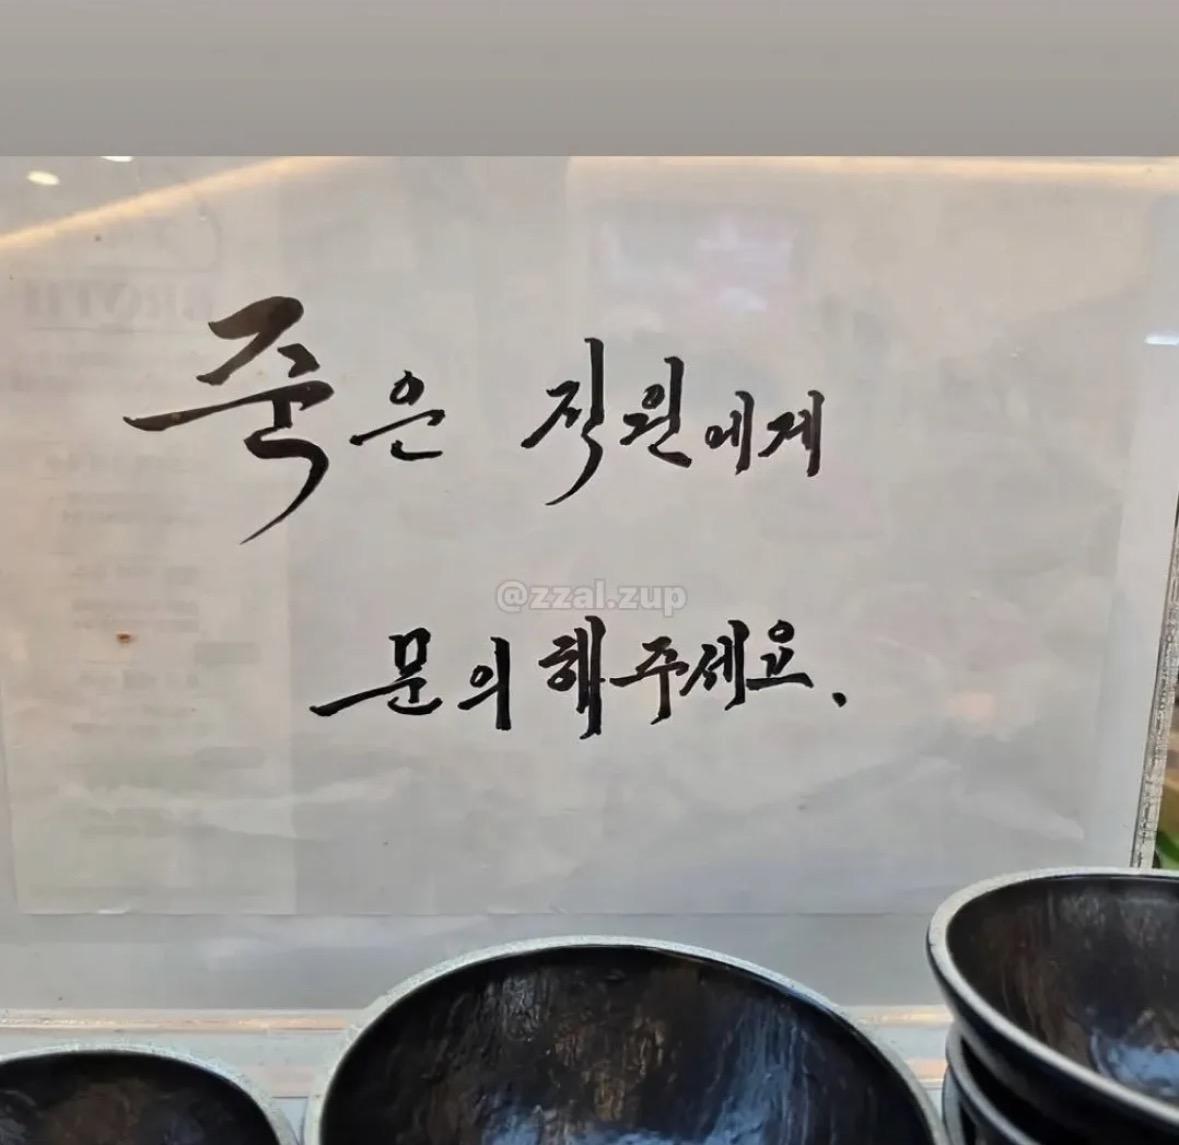 죽은 직원에게
@zzal.zup
문의해주세요.